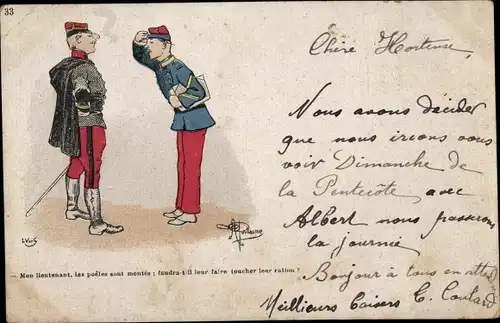 33
Chère Hortense,
Nous avons décider
que nous irions vous
voir Dimanche de
la Pentecôte avec
Albert nous passerons
la journée
Bonjour à tous en attend
Meilleurs baisers C. Coulard
— Mon lieutenant, les poêles sont montés ; faudra-t-il leur faire toucher leur ration ?